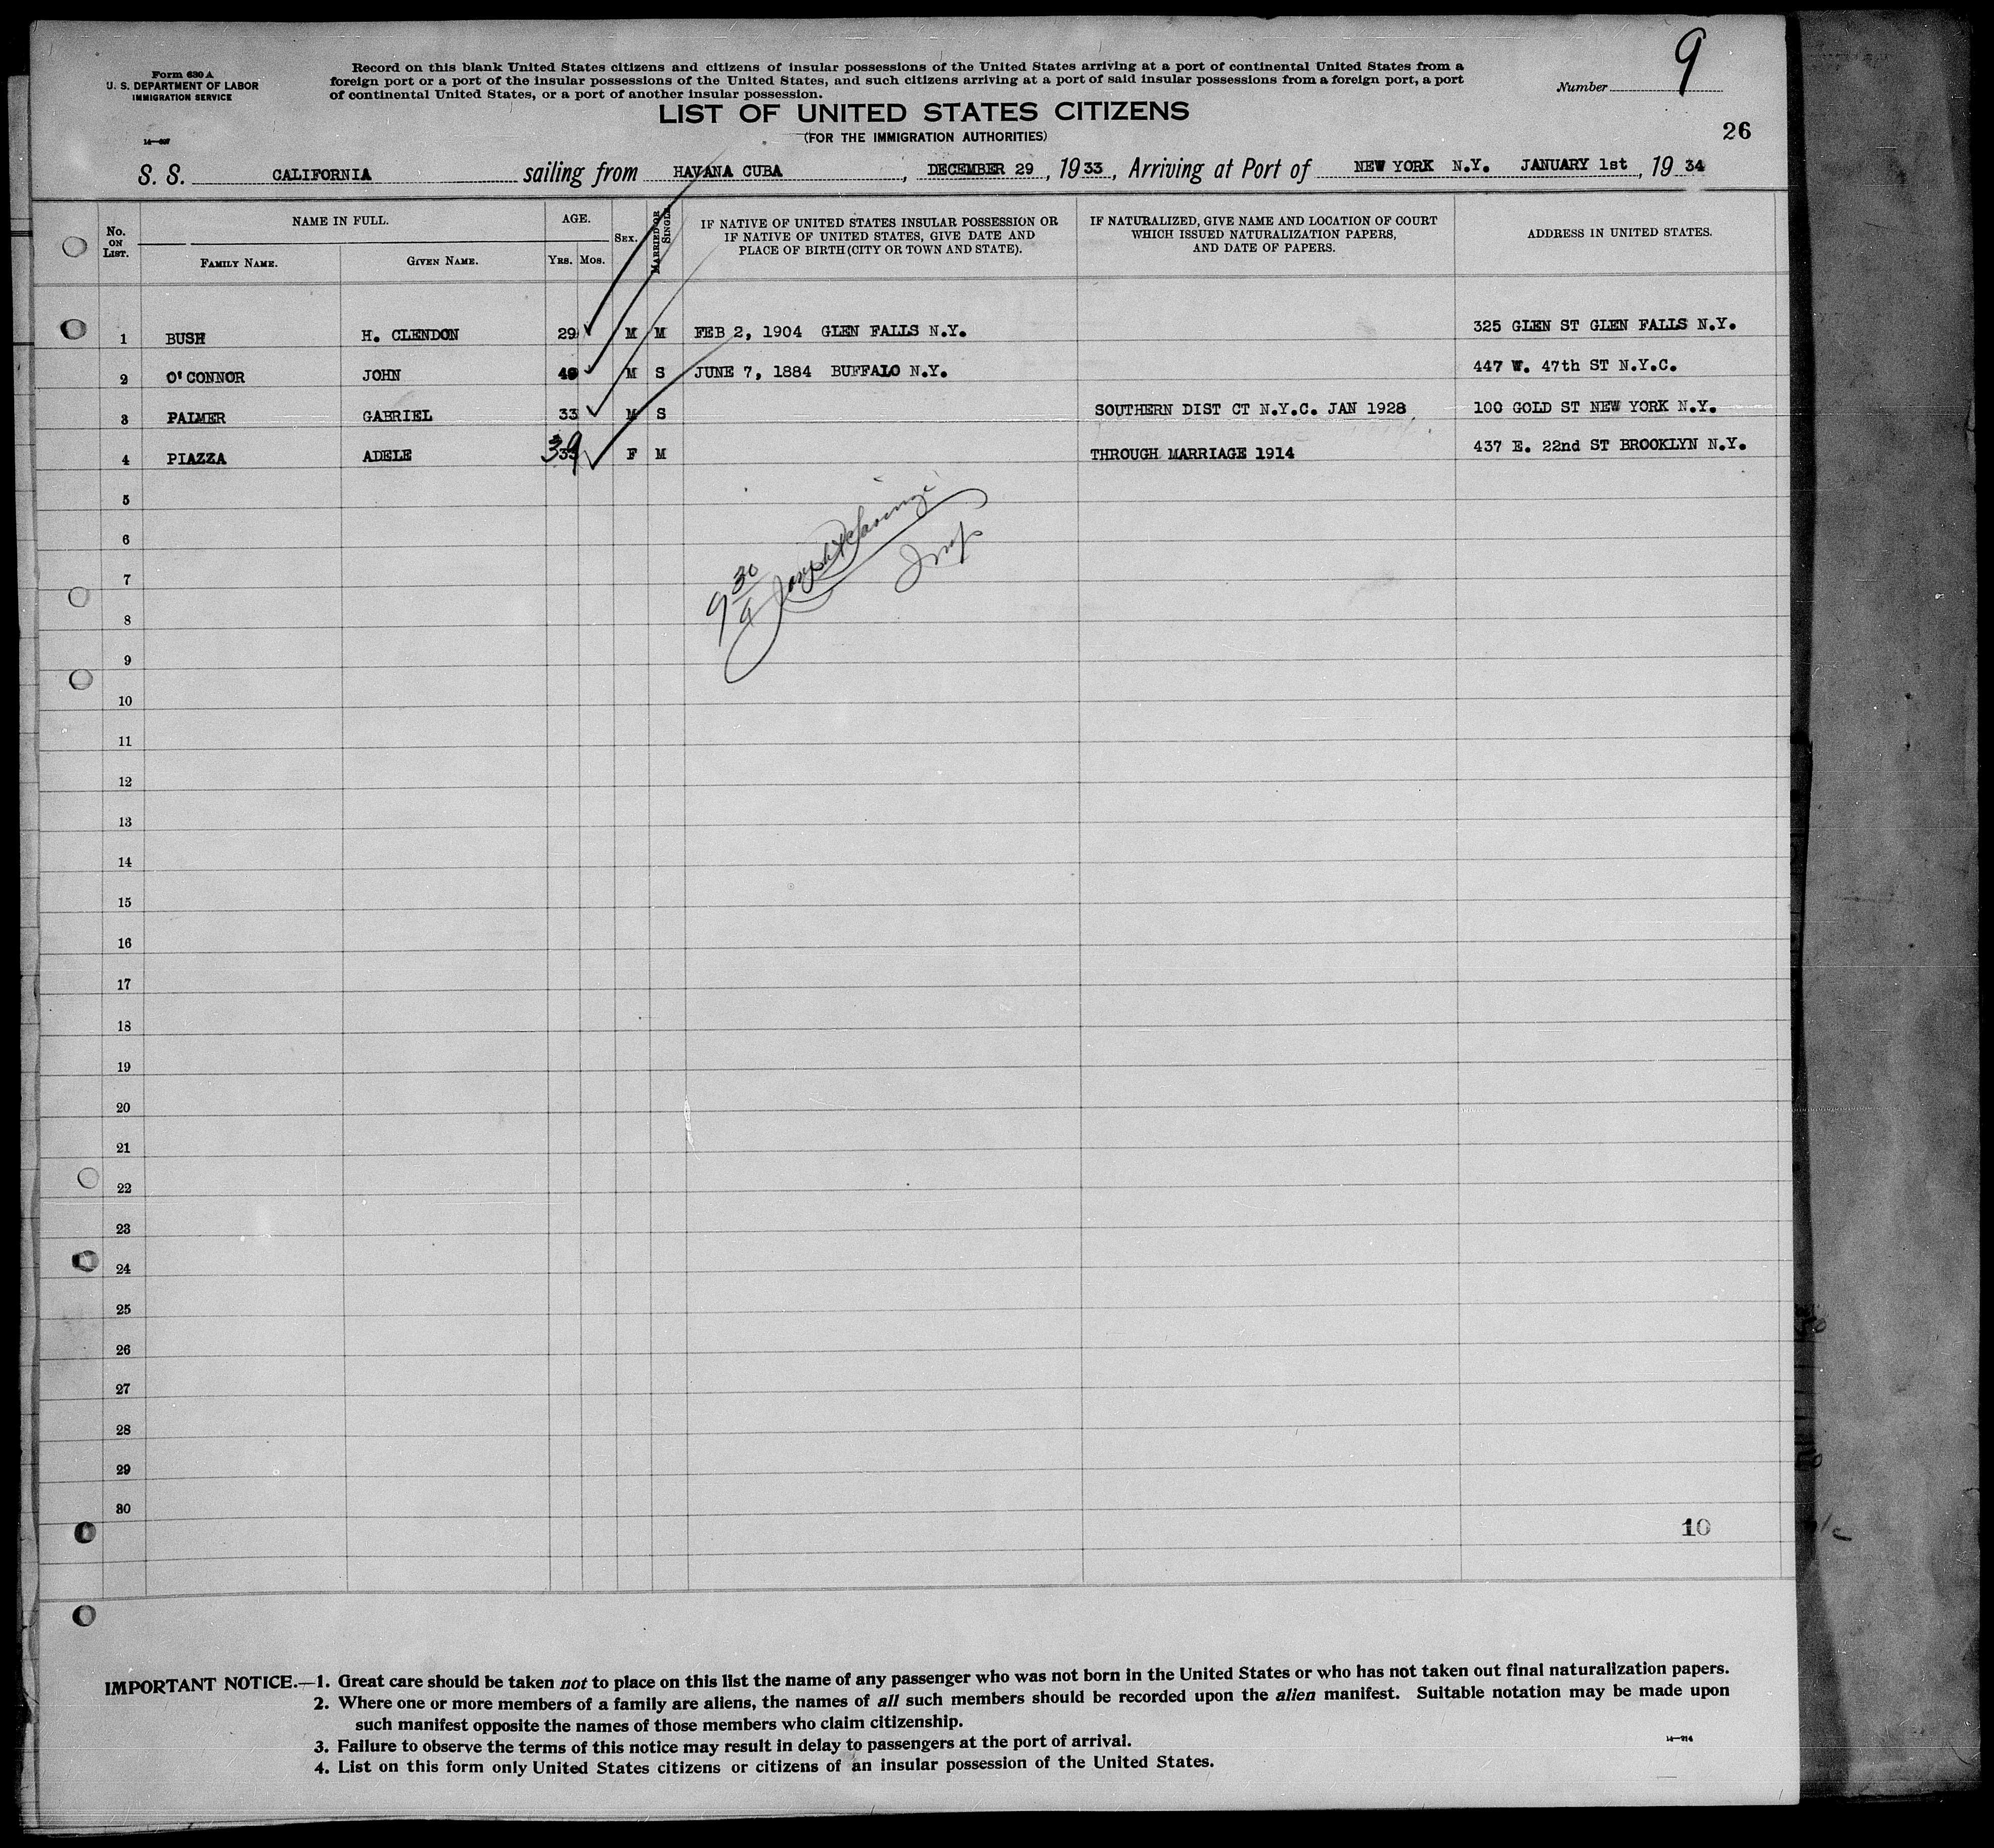 Form 630 A
U. S. DEPARTMENT OF LABOR
IMMIGRATION SERVICE
Record on this blank United States citizens and citizens of insular possessions of the United States arriving at a port of continental United States from a
foreign port or a port of the insular possessions of the United States, and such citizens arriving at a port of said insular possessions from a foreign port, a port
of continental United States, or a port of another insular possession.
Number 9
LIST OF UNITED STATES CITIZENS
(FOR THE IMMIGRATION AUTHORITIES)
26
S. S. CALIFORNIA sailing from HAVANA CUBA, DECEMBER 29, 1933, Arriving at Port of NEW YORK N.Y. JANUARY 1st, 1934
No. ON LIST.
NAME IN FULL.
FAMILY NAME.
GIVEN NAME.
AGE.
YRS. MOS.
SEX.
MARRIED OR SINGLE.
IF NATIVE OF UNITED STATES INSULAR POSSESSION OR
IF NATIVE OF UNITED STATES, GIVE DATE AND
PLACE OF BIRTH (CITY OR TOWN AND STATE).
IF NATURALIZED, GIVE NAME AND LOCATION OF COURT
WHICH ISSUED NATURALIZATION PAPERS,
AND DATE OF PAPERS.
ADDRESS IN UNITED STATES.
1 BUSH H. CLENDON 29 M M FEB 2, 1904 GLEN FALLS N.Y. 325 GLEN ST GLEN FALLS N.Y.
2 O'CONNOR JOHN M S JUNE 7, 1884 BUFFALO N.Y. 447 W. 47th ST N.Y.C.
3 PALMER GABRIEL 33 M S SOUTHERN DIST CT N.Y.C. JAN 1928 100 GOLD ST NEW YORK N.Y.
4 PIAZZA ADELE 39 F M THROUGH MARRIAGE 1914 437 E. 22nd ST BROOKLYN N.Y.
5
6
7
8
9
10
11
12
13
14
15
16
17
18
19
20
21
22
23
24
25
26
27
28
29
30
9 30
Joseph
Insp
10
IMPORTANT NOTICE.—1. Great care should be taken not to place on this list the name of any passenger who was not born in the United States or who has not taken out final naturalization papers.
2. Where one or more members of a family are aliens, the names of all such members should be recorded upon the alien manifest. Suitable notation may be made upon
such manifest opposite the names of those members who claim citizenship.
3. Failure to observe the terms of this notice may result in delay to passengers at the port of arrival.
4. List on this form only United States citizens or citizens of an insular possession of the United States.
14—914